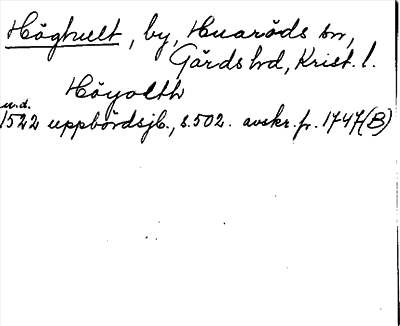 Höghult, by, Huaröds sn,
Gärds hd, Krist. l.
Höyolth
u.d.
1522 uppbördsjb., s.502. avskr. fr. 1747(B)